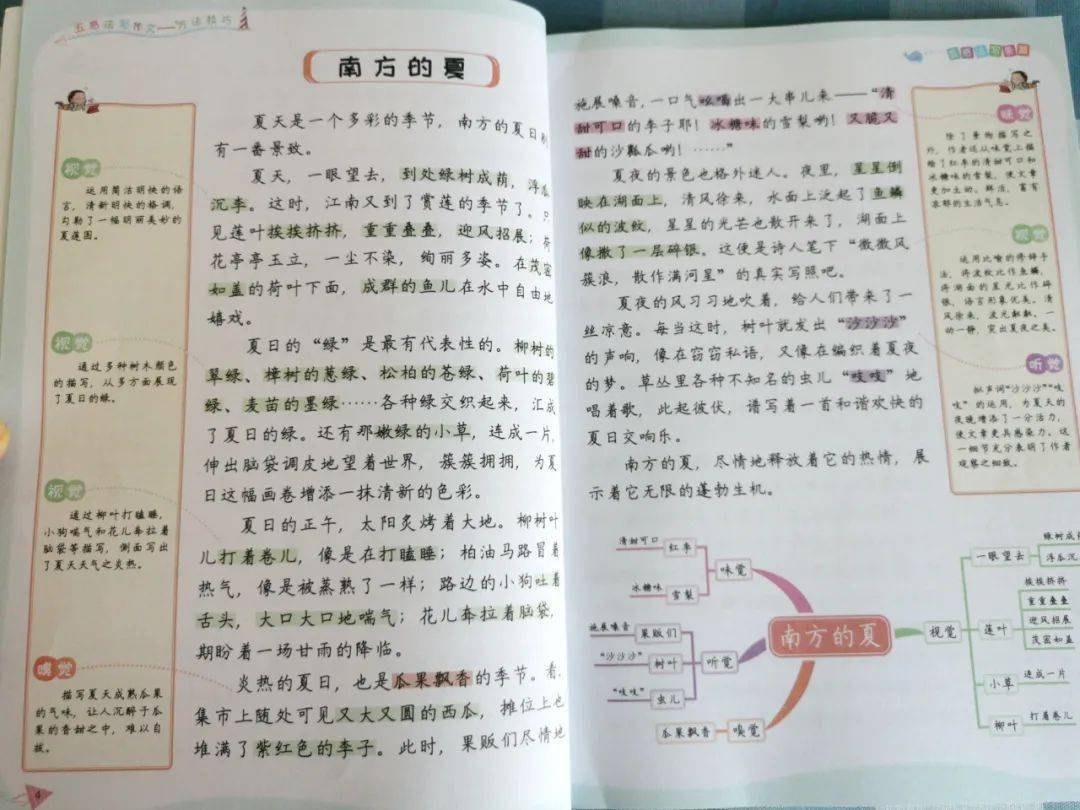 五感法写作文——方法技巧
南方的夏
夏天是一个多彩的季节，南方的夏日别
有一番景致。
夏天，一眼望去，到处绿树成荫，浮瓜
沉李。这时，江南又到了赏莲的季节了。只
见莲叶挨挨挤挤，重重叠叠，迎风招展；荷
花亭亭玉立，一尘不染，绚丽多姿。在茂密
如盖的荷叶下面，成群的鱼儿在水中自由地
嬉戏。
夏日的“绿”是最有代表性的。柳树的
翠绿、樟树的葱绿、松柏的苍绿、荷叶的碧
绿、麦苗的墨绿……各种绿交织起来，汇成
了夏日的绿。还有那嫩绿的小草，连成一片，
伸出脑袋调皮地望着世界，簇簇拥拥，为夏
日这幅画卷增添一抹清新的色彩。
夏日的正午，太阳炙烤着大地。柳树叶
儿打着卷儿，像是在打瞌睡；柏油马路冒着
热气，像是被蒸熟了一样；路边的小狗吐着
舌头，大口大口地喘气；花儿耷拉着脑袋，
期盼着一场甘雨的降临。
炎热的夏日，也是瓜果飘香的季节。看，
集市上随处可见又大又圆的西瓜，摊位上也
堆满了紫红色的李子。此时，果贩们尽情地
视觉
运用简洁明快的语
言，清新明快的格调，
勾勒了一幅明丽美妙的
夏莲图。
视觉
通过多种树木颜色
的描写，从多方面展现
了夏日的绿。
视觉
通过柳叶打瞌睡，
小狗喘气和花儿耷拉着
脑袋等描写，侧面写出
了夏天天气之炎热。
嗅觉
描写夏天成熟瓜果
的气味，让人沉醉于瓜
果的香甜之中，难以自
拔。
4
施展嗓音，一口气吆喝出一大串儿来——“清
甜可口的李子耶！冰糖味的雪梨哟！又脆又
甜的沙瓤瓜哟！……”
夏夜的景色也格外迷人。夜里，星星倒
映在湖面上，清风徐来，水面上泛起了鱼鳞
似的波纹，星星的光芒也散开来了，湖面上
像撒了一层碎银。这便是诗人笔下“微微风
簇浪，散作满河星”的真实写照吧。
夏夜的风习习地吹着，给人们带来了一
丝凉意。每当这时，树叶就发出“沙沙沙”
的声响，像在窃窃私语，又像在编织着夏夜
的梦。草丛里各种不知名的虫儿“吱吱”地
唱着歌，此起彼伏，谱写着一首和谐欢快的
夏日交响乐。
南方的夏，尽情地释放着它的热情，展
示着它无限的蓬勃生机。
味觉
除了景物描写之
外，作者还从味觉上描
绘了红李的清甜可口和
冰糖味的雪梨，使文章
更加生动、鲜活，富有
浓郁的生活气息。
视觉
运用比喻的修辞手
法，将波纹比作鱼鳞，
将湖面的星光比作碎
银，语言形象优美。清
风徐来，波光粼粼，一
动一静，突出夏夜之美。
听觉
拟声词“沙沙沙”“吱
吱”的运用，为夏天的
夜晚增添了一分活力，
使文章更具感染力。这
一细节充分表明了作者
观察之细致。
南方的夏
味觉
清甜可口
红李
冰糖味
雪梨
听觉
施展嗓音
果贩们
“沙沙沙”
树叶
“吱吱”
虫儿
嗅觉
瓜果飘香
视觉
一眼望去
绿树成
浮瓜沉
莲叶
挨挨挤挤
重重叠叠
迎风招展
茂密如盖
小草
连成一片
柳叶
打着卷儿